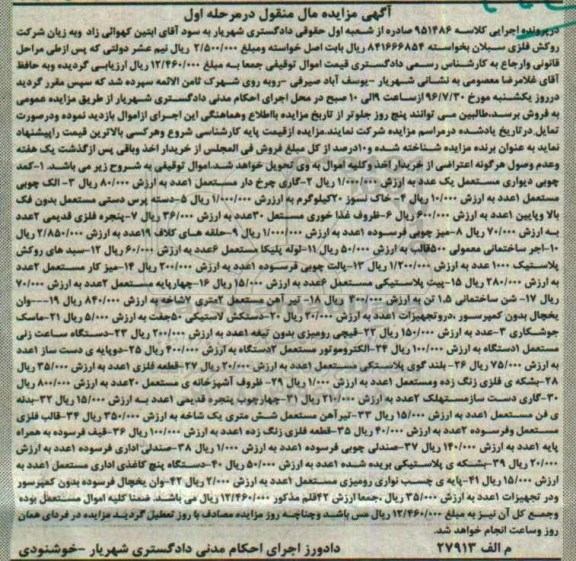 آگهی مزایده مال منقول درمرحله اول
درپرونده اجرایی کلاسه ۹۵۱۴۸۶ صادره از شعبه اول حقوقی دادگستری شهریار به سود آقای ابتین کهوائی زاد وبه زیان شرکت
روکش فلزی سبلان بخواسته ۸۴۱۶۶۶۸۵۴ ریال بابت اصل خواسته ومبلغ ۲/۵۰۰/۰۰۰ ریال نیم عشر دولتی که پس ازطی مراحل
قانونی وارجاع به کارشناس رسمی دادگستری قیمت اموال توقیفی جمعا به مبلغ ۱۲/۴۶۰/۰۰۰ ریال ارزیابی گردیده وبه حافظ
آقای غلامرضا معصومی به نشانی شهریار -یوسف آباد صیرفی -روبه روی شهرک ثامن الائمه سپرده شد که سپس مقرر گردید
درروز یکشنبه مورخ ۹۶/۷/۳۰ ازساعت ۹الی ۱۰ صبح در محل اجرای احکام مدنی دادگستری شهریار از طریق مزایده عمومی
به فروش برسد.طالبین می توانند پنج روز جلوتر از تاریخ مزایده بااطلاع وهماهنگی این اجرای ازاموال بازدید نموده ودرصورت
تمایل درتاریخ یادشده درمراسم مزایده شرکت نمایند.مزایده ازقیمت پایه کارشناسی شروع وهرکسی بالاترین قیمت راپیشنهاد
نماید به عنوان برنده مزایده شناخته شده و۱۰درصد از کل مبلغ فروش فی المجلس از خریدار اخذ وباقی پس ازگذشت یک هفته
وعدم وصول هرگونه اعتراضی از خریدار اخذ وکلیه اموال به وی تحویل خواهد شد.اموال توقیفی به شروح زیر می باشد. ۱-کمد
چوبی دیواری مستعمل یک عدد به ارزش ۱/۰۰۰/۰۰۰ ریال ۲-گاری چرخ دار مستعمل ۱عدد به ارزش ۸۰/۰۰۰ ریال ۳- الک چوبی
مستعمل ۱عدد به ارزش ۱۰/۰۰۰ ریال ۴- خاک نسوز ۲۰کیلوگرم به ارزش ۱/۰۰۰/۰۰۰ ریال ۵-دسته پرس دستی مستعمل بدون فک
بالا وپایین ۱عدد به ارزش ۶۰۰/۰۰۰ ریال ۶-ظروف غذا خوری مستعمل ۳۰عدد به ارزش ۳۶/۰۰۰ ریال ۷-پنجره فلزی قدیمی ۲عدد
به ارزش ۷۰/۰۰۰ ریال ۸-میز چوبی فرسوده ۱عدد به ارزش ۱/۰۰۰ ریال ۹-حلقه های کلاف ۱۹عدد به ارزش ۲/۸۵۰/۰۰۰ ریال
۱۰-اجر ساختمانی معمولی ۵۰۰قالب به ارزش ۵۰/۰۰۰ ریال ۱۱-لوله پلیکا مستعمل ۶عدد به ارزش ۶۰/۰۰۰ ریال ۱۲-سبد های روکش
پلاستیک ۱۰۰۰ عدد به ارزش ۱/۲۰۰/۰۰۰ ریال ۱۳-پالت چوبی فرسوده ۱عدد به ارزش ۲۰۰/۰۰۰ ریال ۱۴-میز کار مستعمل ۲عدد
به ارزش ۲۸۰/۰۰۰ ریال ۱۵-پیت پلاستیکی مستعمل ۶عدد به ارزش ۱۵/۰۰۰ ریال ۱۶-چهارپایه مستعمل ۲عدد به ارزش ۷۰/۰۰۰
ریال ۱۷- شن ساختمانی ۱.۵ تن به ارزش ۳۰۰/۰۰۰ ریال ۱۸- تیر آهن مستعمل ۲متری ۷شاخه به ارزش ۸۴۰/۰۰۰ ریال ۱۹---وان
یخچال بدون کمپرسور ،دروتجهیزات ۱عدد به ارزش ۲۰/۰۰۰ ریال ۲۰-دستکش لاستیکی ۵۰جفت به ارزش ۵/۰۰۰ ریال ۲۱-ماسک
جوشکاری ۳-عدد به ارزش ۱۵۰/۰۰۰ ریال ۲۲-قیچی رومیزی بدون تیغه ۱عدد به ارزش ۲۰۰/۰۰۰ ریال ۲۳-دستگاه ساعت زنی
مستعمل ۱دستگاه به ارزش ۱۰۰/۰۰۰ ریال ۲۴-الکتروموتور مستعمل ۲دستگاه به ارزش ۴۰۰/۰۰۰ ریال ۲۵-دوپایه ی دست ساز ۱عدد
به ارزش ۷۵/۰۰۰ ریال ۲۶- بلند گوی پلاستکی مستعمل ۱عدد به ارزش ۲۰/۰۰۰ ریال ۲۷-قطعه فلزی ۱عدد به ارزش ۳۵/۰۰۰ ریال
۲۸-بشکه ی فلزی زنگ زده ومستعمل ۱عدد به ارزش ۱/۰۰۰ ریال ۲۹- ظروف آشپزخانه ی مستعمل ۲۰عدد به ارزش ۸۰۰/۰۰۰ ریال
۳۰-گاری دست سازمستهلک ۲عدد به ارزش ۲۱۰/۰۰۰ ریال ۳۱-چهارچوب پنجره قدیمی ۱عدد به ارزش ۱۵/۰۰۰ ریال ۳۲-بدنه
ی فن مستعمل ۱عدد به ارزش ۱۵/۰۰۰ ریال ۳۳-تیرآهن مستعمل شش متری یک شاخه به ارزش ۳۵۰/۰۰۰ ریال ۳۴-قالب فلزی
مستعمل وفرسوده ۲عدد به ارزش ۴۰/۰۰۰ ریال ۳۵-قطعه فلزی زنگ زده ۱عدد به ارزش ۱۰۰/۰۰۰ ریال ۳۶-قیف فرسوده به همراه
پایه ۱عدد به ارزش ۱۴۰/۰۰۰ ریال ۳۷-صندلی چوبی فرسوده ۱عدد به ارزش ۱/۰۰۰ ریال ۳۸-صندلی اداری فرسوده ۱عدد به ارزش
۲۰/۰۰۰ ریال ۳۹-بشکه ی پلاستیکی بریده شده ۱عدد به ارزش ۵۰/۰۰۰ ریال ۴۰-دستگاه پنج کاغذی اداری مستعمل ۱عدد به
ارزش ۱۵/۰۰۰ ریال ۴۱-پایه ی چسب نواری رومیزی مستعمل ۱عدد به ارزش ۲/۰۰۰ ریال ۴۲-وان یخچال فرسوده بدون کمپرسور
ودر تجهیزات ۱عدد به ارزش ۳۵/۰۰۰ ریال .جمعا ارزش ۴۲قلم مذکور ۱۲/۴۶۰/۰۰۰ ریال می باشد. ضمنا کلیه اموال مستعمل بوده
وجمع کل آن نیز به مبلغ ۱۲/۴۶۰/۰۰۰ ریال می باشد وچناچه روز مزایده مصادف با روز تعطیل گردید مزایده در فردای همان
روز وساعت انجام خواهد شد.
م الف ۲۷۹۱۳ دادورز اجرای احکام مدنی دادگستری شهریار -خوشنودی